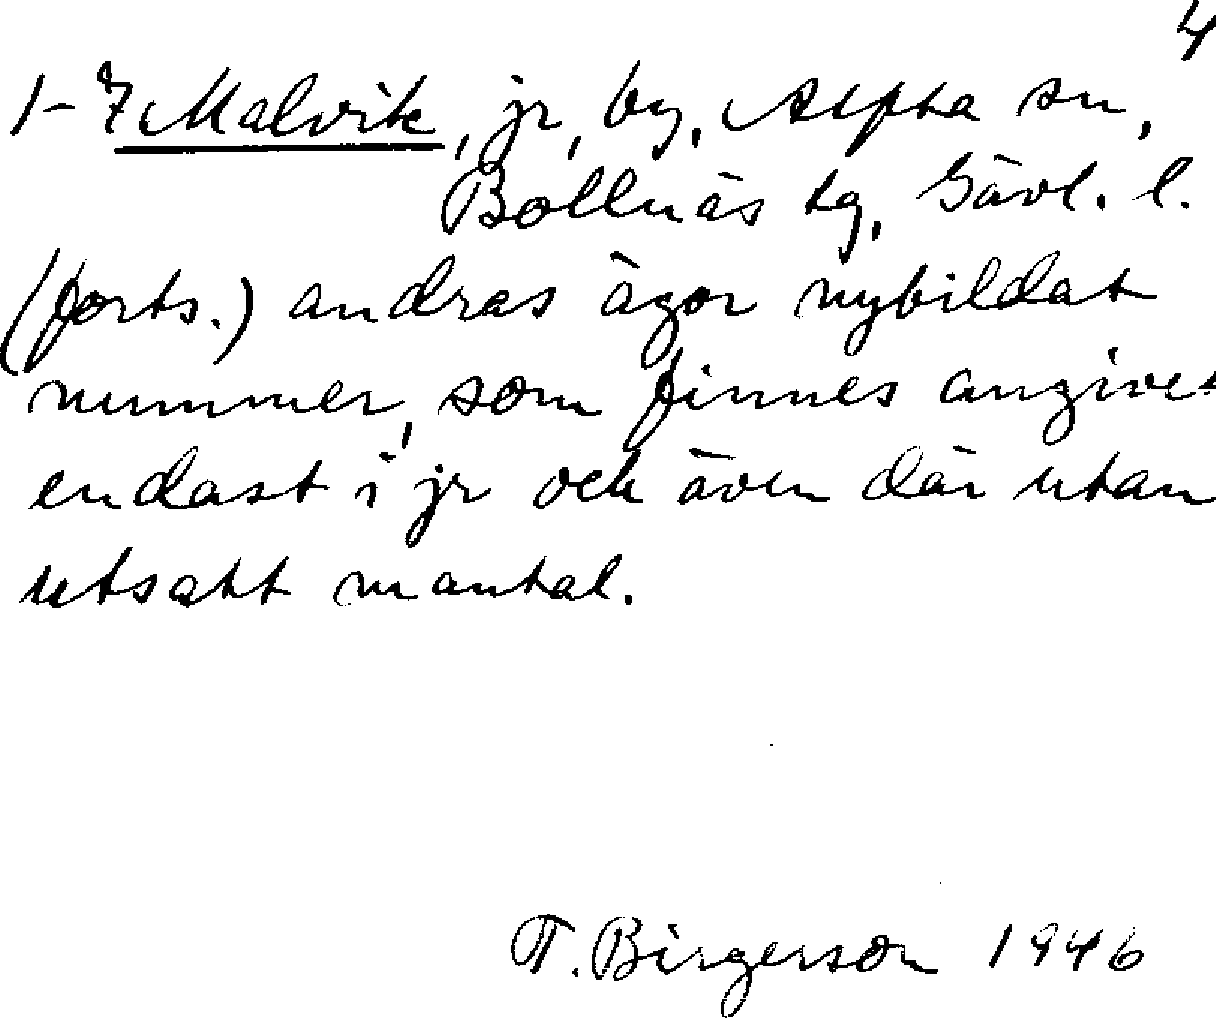 4
1-7 Malvik, jr, by, Alfta sn,
Bollnäs tg, Gävl. l.
(forts.) andras ägor nybildat
nummer, som finnes angivet
endast i jr och även där utan
utsatt mantal.
T. Birgerson 1946